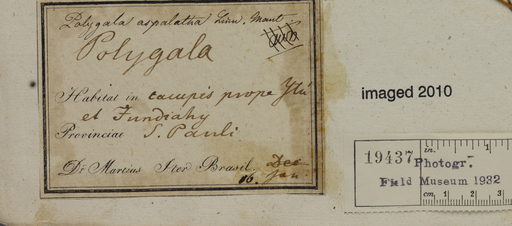 Polygala aspalatha Linn. Mant.
Polygala
Habitat in campis prope Ytú
et Jundiahy
Provinciae S. Pauli
Dr Martius Iter Brasil. Dec
16. Jan.
imaged 2010
in. 1
19437 Photogr.
Field Museum 1932
cm. 1 2 3